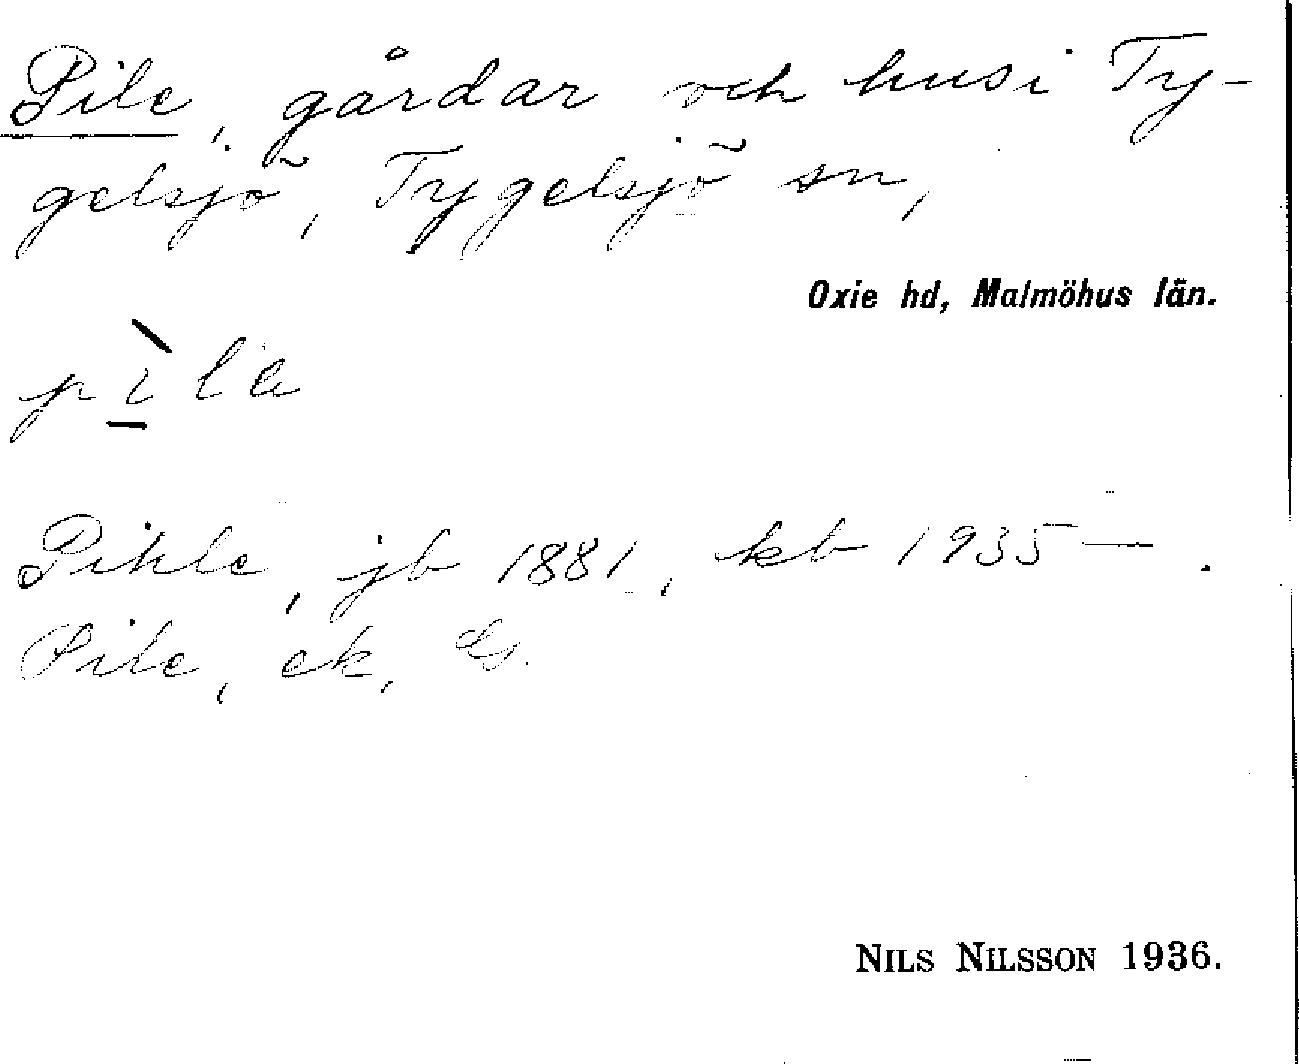 Pile, gårdar och hus i Ty-
gelsjö, Tygelsjö sn,
Oxie hd, Malmöhus län.
pìla
Pihle, jb 1881, kb 1935 — .
Pile, ek, G.
NILS NILSSON 1936.